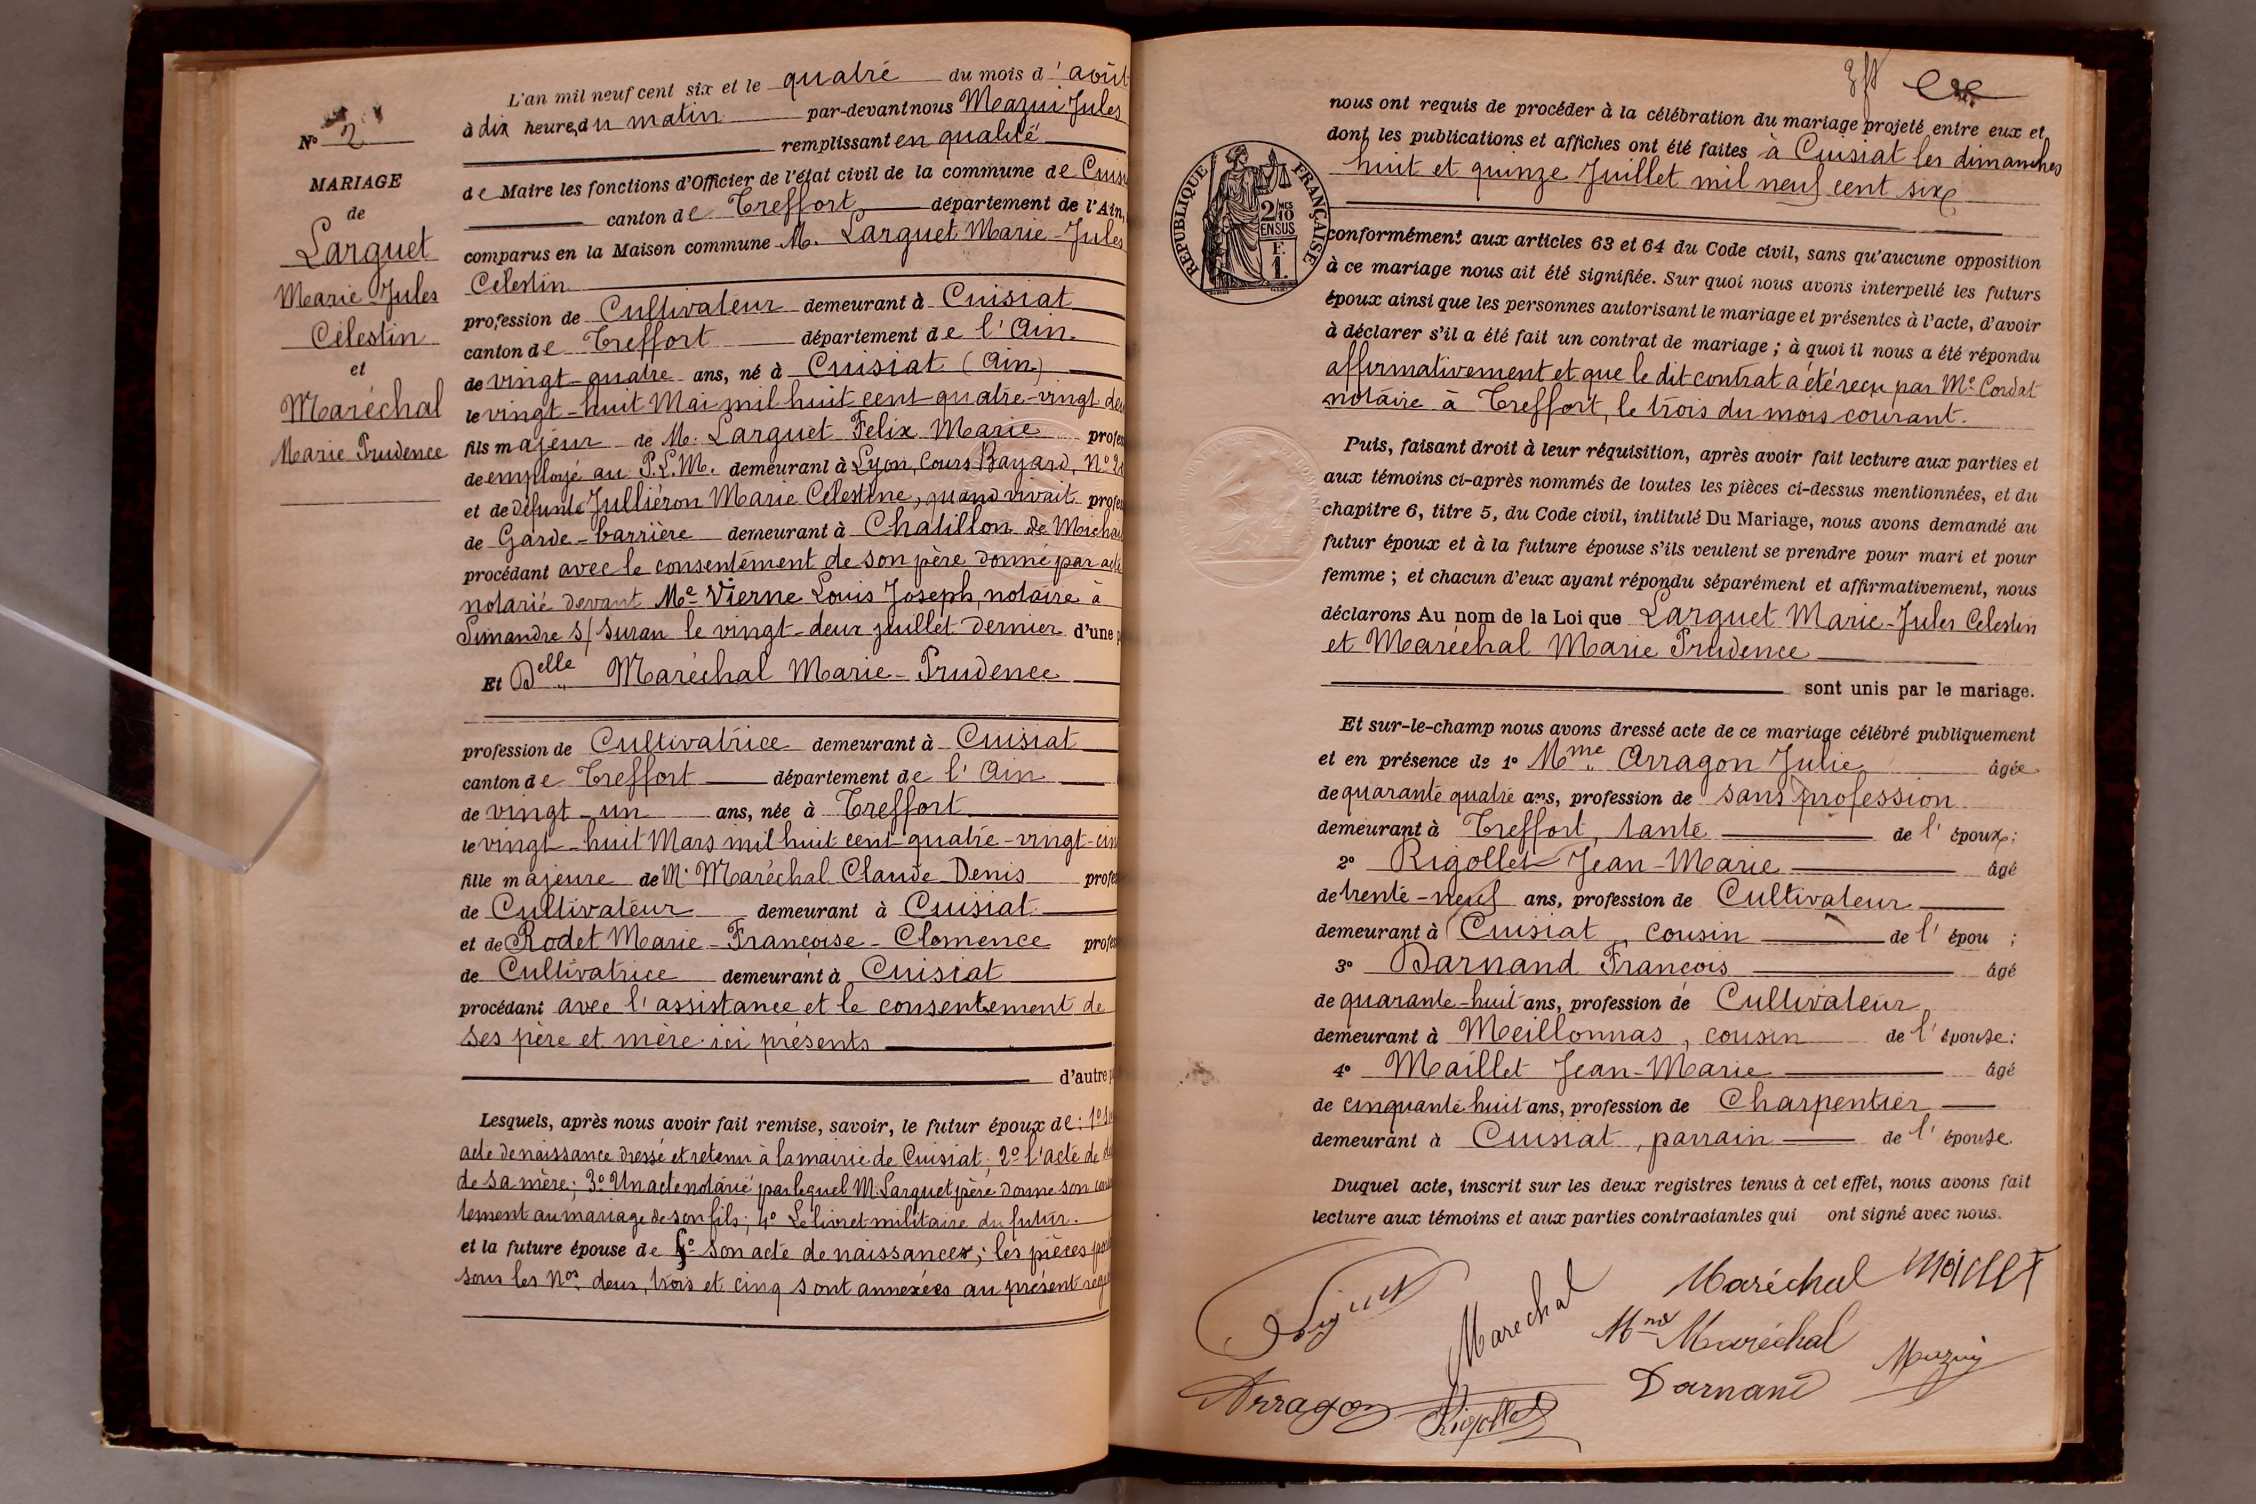 L'an mil neuf cent six et le quatre du mois d'août
à dix heures du matin par-devant nous Mazui Jules
remplissant en qualité
de Maire les fonctions d'Officier de l'état civil de la commune de
canton de Treffort département de l'Ain,
comparus en la Maison commune M. Larguet Marie-Jules
Célestin
profession de Cultivateur demeurant à Cuisiat
canton de Treffort département de l'Ain.
de vingt-quatre ans, né à Cuisiat (Ain)
le vingt-huit Mai mil huit cent quatre-vingt
fils majeur de M. Larguet Felix Marie
de employé au P.L.M. demeurant à Lyon, Cours Bayard, No
et de défunte Julliéron Marie Célestine, quand vivait
de Garde-barrière demeurant à Chatillon de
procédant avec le consentement de son père donné par acte
notarié devant Me Vierne Louis Joseph, notaire à
Simandre s/ Suran le vingt-deux juillet dernier d'une
Et Delle Maréchal Marie-Prudence
profession de Cultivatrice demeurant à Cuisiat
canton de Treffort département de l'Ain
de vingt-un ans, née à Treffort
le vingt-huit Mars mil huit cent quatre-vingt-
fille majeure de M. Maréchal Claude Denis
de Cultivateur demeurant à Cuisiat
et de Rodet Marie-Françoise-Clomence
de Cultivatrice demeurant à Cuisiat
procédant avec l'assistance et le consentement de
ses père et mère ici présents
d'autre
Lesquels, après nous avoir fait remise, savoir, le futur époux de: 1o
acte de naissance dressé et retenu à la mairie de Cuisiat; 2o l'acte de
de sa mère; 3o Un acte notarié par lequel M. Larguet père donne son
tement au mariage de son fils; 4o Le livret militaire du futur.
et la future épouse de 5o son acte de naissance; les pièces
sous les Nos deux, trois et cinq sont annexées au présent
No 2
MARIAGE
de
Larguet
Marie Jules
Célestin
et
Maréchal
Marie Prudence
nous ont requis de procéder à la célébration du mariage projeté entre eux et
dont les publications et affiches ont été faites à Cuisiat les dimanches
huit et quinze Juillet mil neuf cent six
RÉPUBLIQUE FRANÇAISE
2/10 MES
EN SUS
F.
1.
conformément aux articles 63 et 64 du Code civil, sans qu'aucune opposition
à ce mariage nous ait été signifiée. Sur quoi nous avons interpellé les futurs
époux ainsi que les personnes autorisant le mariage et présentes à l'acte, d'avoir
à déclarer s'il a été fait un contrat de mariage; à quoi il nous a été répondu
affirmativement et que le dit contrat a été reçu par Me Cordat
notaire à Treffort, le trois du mois courant.
Puis, faisant droit à leur réquisition, après avoir fait lecture aux parties et
aux témoins ci-après nommés de toutes les pièces ci-dessus mentionnées, et du
chapitre 6, titre 5, du Code civil, intitulé Du Mariage, nous avons demandé au
futur époux et à la future épouse s'ils veulent se prendre pour mari et pour
femme; et chacun d'eux ayant répondu séparément et affirmativement, nous
déclarons Au nom de la Loi que Larguet Marie-Jules Célestin
et Maréchal Marie Prudence
sont unis par le mariage.
Et sur-le-champ nous avons dressé acte de ce mariage célébré publiquement
et en présence de 1o Mme Arragon Julie âgée
de quarante quatre ans, profession de sans profession
demeurant à Treffort, tante de l'époux;
2o Rigollet Jean-Marie âgé
de trente-neuf ans, profession de Cultivateur
demeurant à Cuisiat, cousin de l'épou ;
3o Darnand François âgé
de quarante-huit ans, profession de Cultivateur
demeurant à Meillonnas, cousin de l'épouse;
4o Maillet Jean-Marie âgé
de cinquante huit ans, profession de Charpentier
demeurant à Cuisiat, parrain de l'épouse.
Duquel acte, inscrit sur les deux registres tenus à cet effet, nous avons fait
lecture aux témoins et aux parties contractantes qui ont signé avec nous.
Maréchal Maillet
Marechal
Mme Maréchal
Mazuy
Darnand
Arragon Rigollet